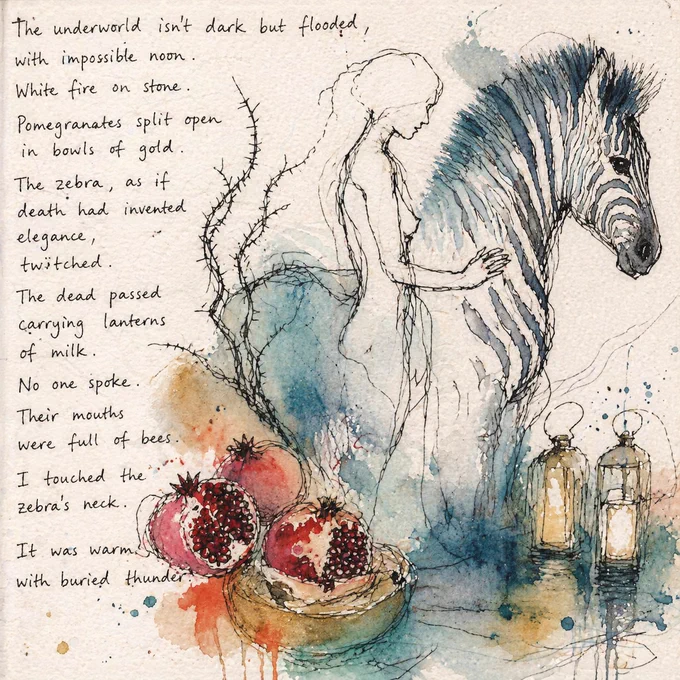 The underworld isn't dark but flooded,
with impossible noon.
White fire on stone.
Pomegranates split open
in bowls of gold.
The zebra, as if
death had invented
elegance,
twitched.
The dead passed
carrying lanterns
of milk.
No one spoke.
Their mouths
were full of bees.
I touched the
zebra's neck.
It was warm
with buried thunder